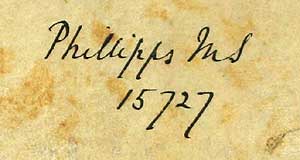 Phillipps MS
15727